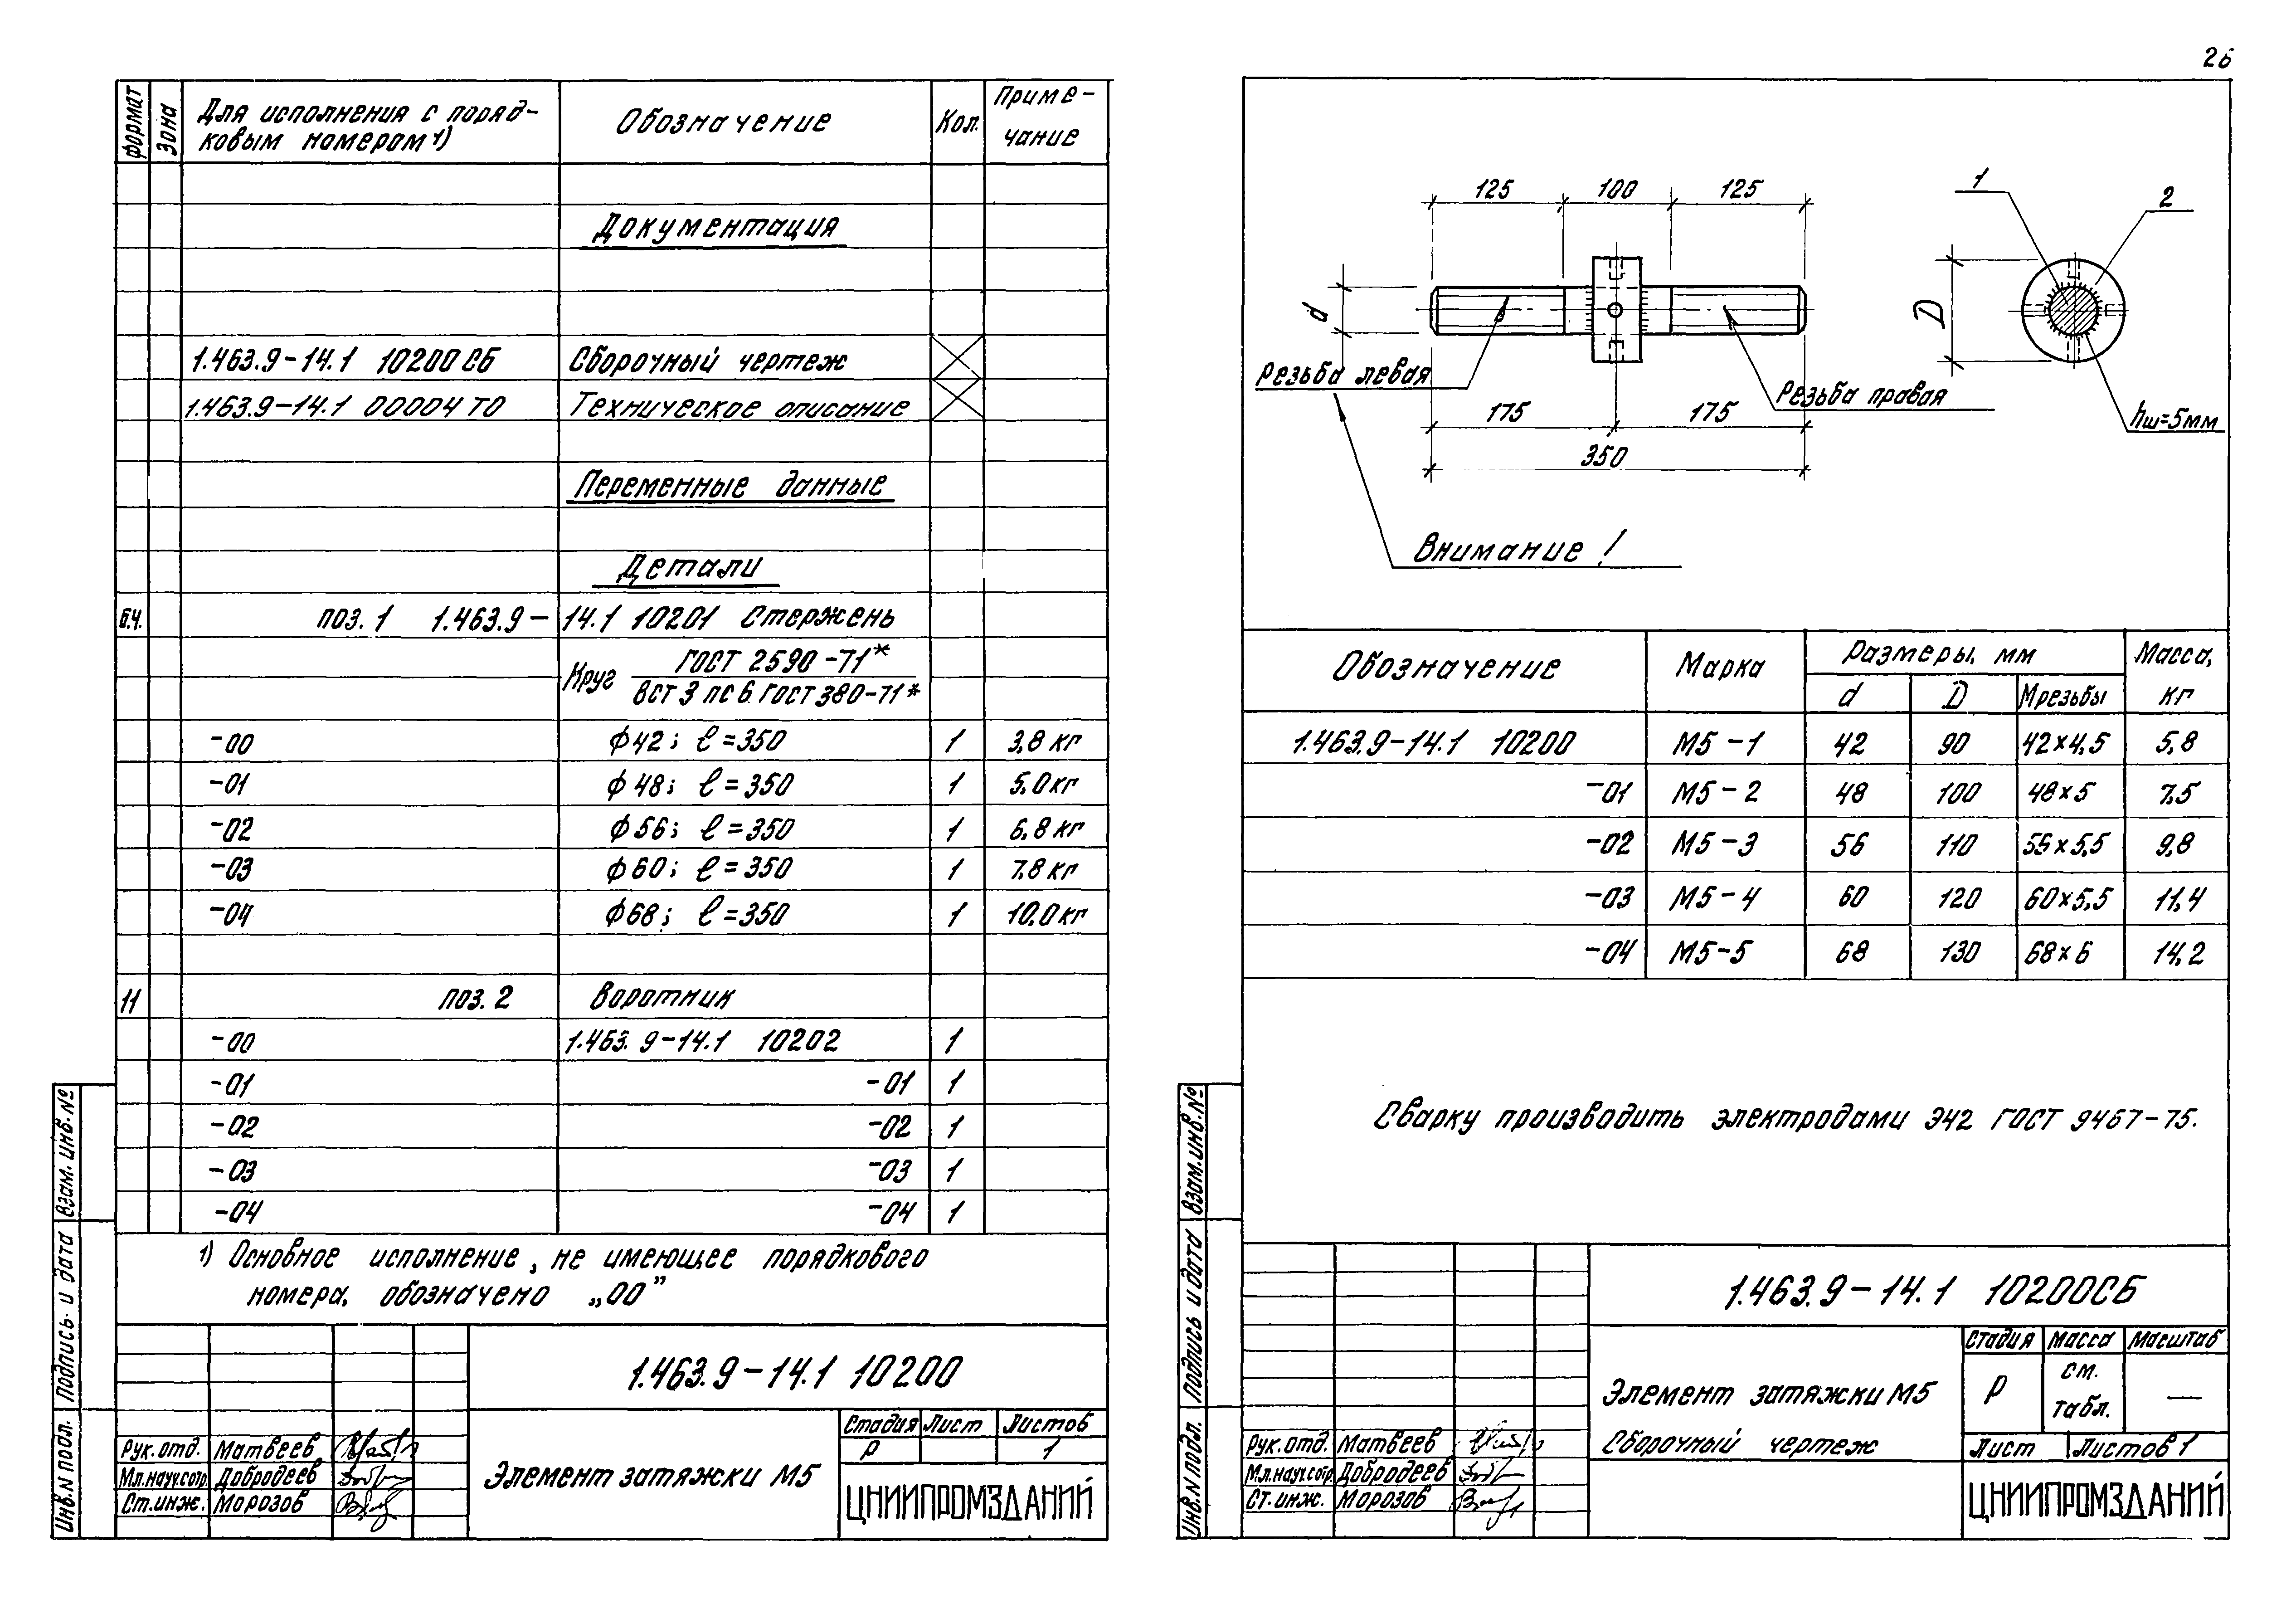 26
формат
Зона
Для исполнения с поряд-
ковым номером 1)
Обозначение
Кол.
Приме-
чание
Документация
1.463.9-14.1 10200 СБ Сборочный чертеж
1.463.9-14.1 00004 ТО Техническое описание
Переменные данные
Детали
Б.Ч. поз. 1 1.463.9-14.1 10201 Стержень
Круг ГОСТ 2590-71*
ВСТ 3 пс 6 ГОСТ 380-71*
-00 ϕ42; ℓ=350 1 3,8 кг
-01 ϕ48; ℓ=350 1 5,0 кг
-02 ϕ56; ℓ=350 1 6,8 кг
-03 ϕ60; ℓ=350 1 7,8 кг
-04 ϕ68; ℓ=350 1 10,0 кг
11 поз. 2 Воротник
-00 1.463.9-14.1 10202 1
-01 -01 1
-02 -02 1
-03 -03 1
-04 -04 1
1) Основное исполнение, не имеющее порядкового
номера, обозначено „00”
1.463.9-14.1 10200
Стадия Лист Листов
Р 1
Рук. отд. Матвеев
Мл.науч.сотр. Добродеев
Ст. инж. Морозов
Элемент затяжки М5
ЦНИИПРОМЗДАНИЙ
Взам. инв. №
Подпись и дата
Инв. N подл.
125 100 125
1
2
d
D
Резьба левая
Резьба правая
hш=5мм
175 175
350
Внимание!
Обозначение Марка Размеры, мм Масса,
d D Mрезьбы кг
1.463.9-14.1 10200 М5-1 42 90 42×4,5 5,8
-01 М5-2 48 100 48×5 7,5
-02 М5-3 56 110 56×5,5 9,8
-03 М5-4 60 120 60×5,5 11,4
-04 М5-5 68 130 68×6 14,2
Сварку производить электродами Э42 ГОСТ 9467-75.
1.463.9-14.1 10200СБ
Стадия Масса Масштаб
Р см. —
табл.
Элемент затяжки М5
Сборочный чертеж
Лист Листов 1
Рук. отд. Матвеев
Мл.науч.сотр. Добродеев
Ст. инж. Морозов
ЦНИИПРОМЗДАНИЙ
Взам. инв. №
Подпись и дата
Инв. N подл.